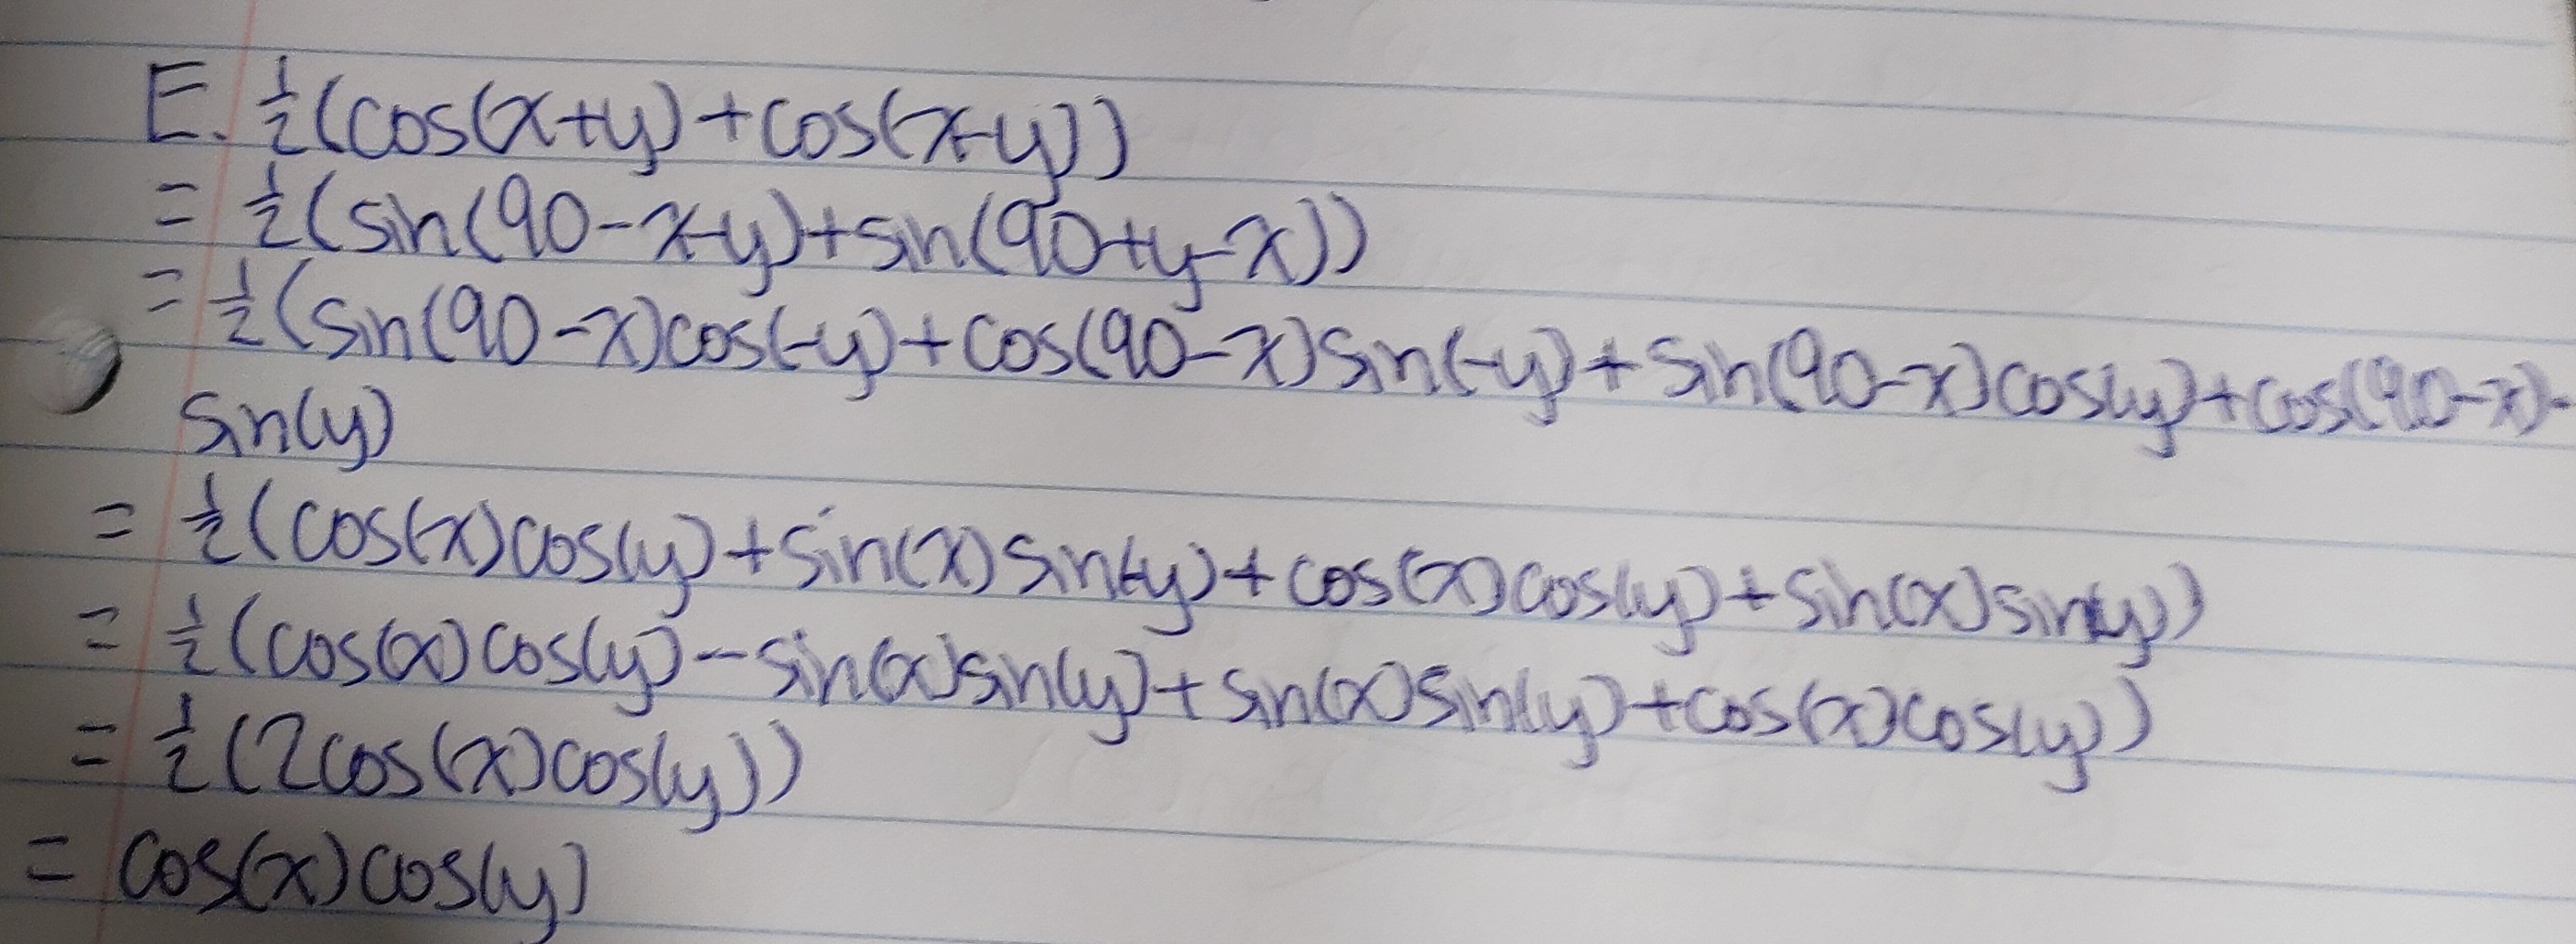 E. ½(cos(x+y)+cos(x-y))
= ½(sin(90-x-y)+sin(90+y-x))
= ½(sin(90-x)cos(-y)+cos(90-x)sin(-y)+sin(90-x)cos(y)+cos(90-x)·
sin(y)
= ½(cos(x)cos(y)+sin(x)sin(-y)+cos(x)cos(y)+sin(x)sin(y))
= ½(cos(x)cos(y)-sin(x)sin(y)+sin(x)sin(y)+cos(x)cos(y))
= ½(2cos(x)cos(y))
= cos(x)cos(y)